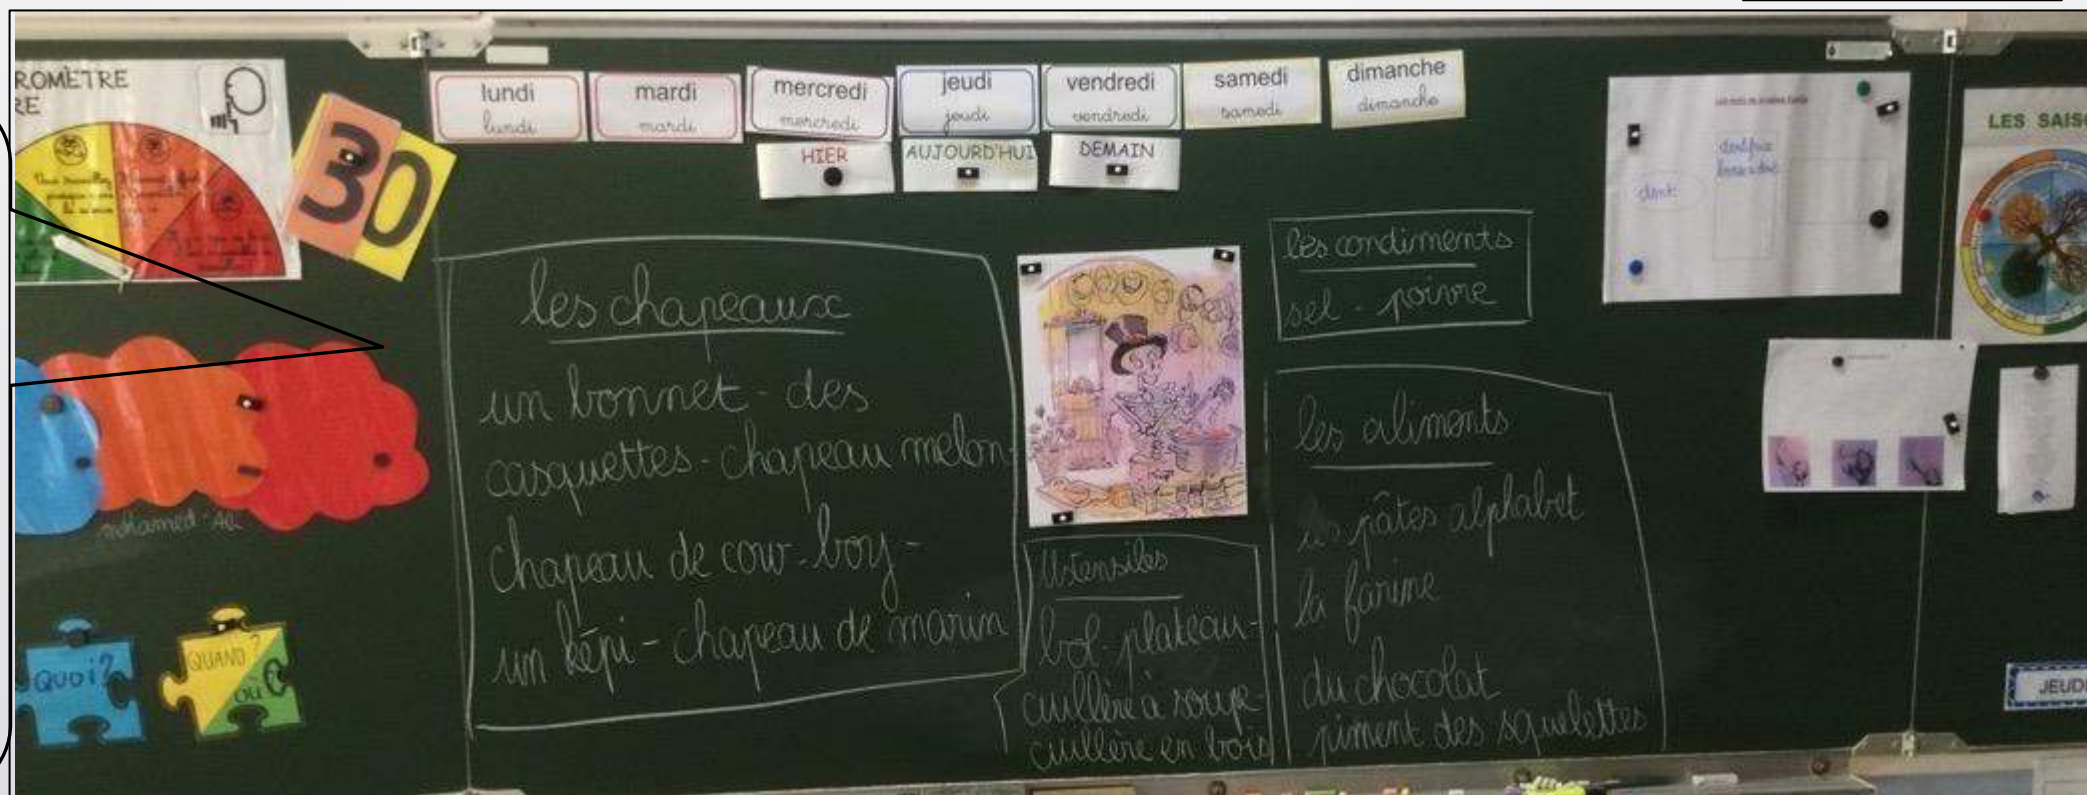 ROMÈTRE
RE
30
lundi
lundi
mardi
mardi
mercredi
mercredi
jeudi
jeudi
vendredi
vendredi
samedi
samedi
dimanche
dimanche
HIER
AUJOURD'HUI
DEMAIN
les chapeaux
un bonnet - des
casquettes - chapeau melon -
chapeau de cow-boy -
un képi - chapeau de marin
les condiments
sel - poivre
Ustensiles
bol - plateau -
cuillère à soupe -
cuillère en bois
les aliments
les pâtes alphabet
la farine
du chocolat
piment des squelettes
dont
LES SAIS
Mohamed-Ali
QUOI?
QUAND?
OÙ
JEUDI